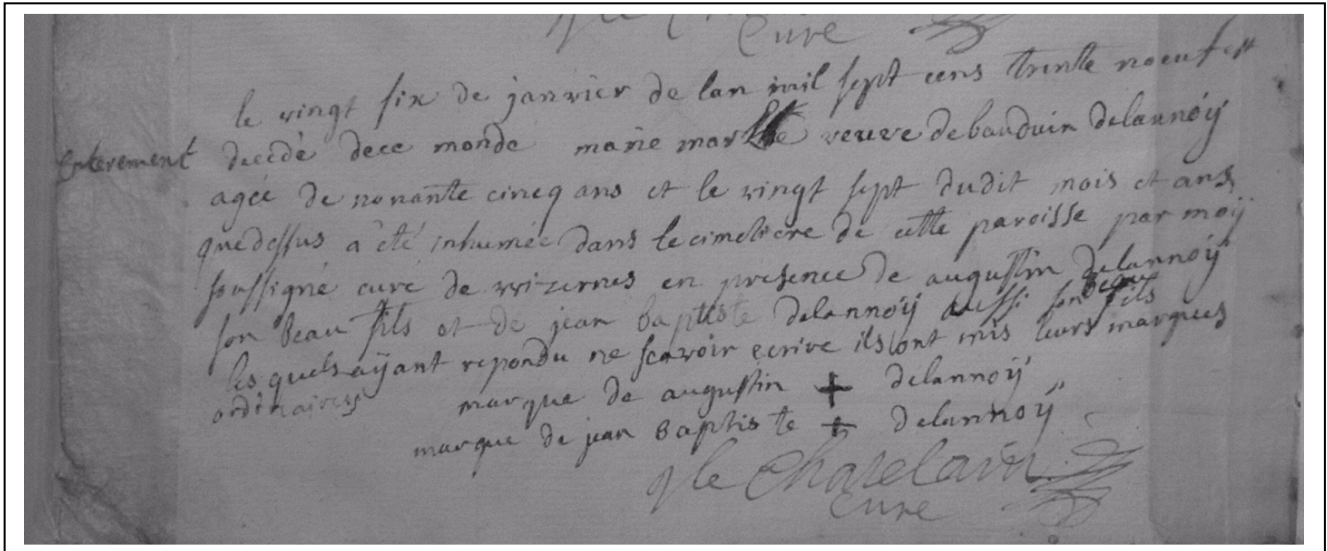 Cure
le vingt six de janvier de lan mil sept cens trente noeuf est
Enterement
decedé dece monde marie marthe veuve debauduin delannoÿ
agée de nonante cincq ans et le vingt sept dudit mois et ans
quedessus a été inhumée dans lecimetiere de cette paroisse par moÿ
soussigné curé de wizernes en presence de augustin delannoÿ
son beau fils et de jean baptiste delannoÿ aussi son beau fils
les quels aÿant repondu ne scavoir ecrire ils ont mis leurs marques
ordinaires marque de augustin + delannoÿ
marque de jean baptiste + delannoÿ
Cure